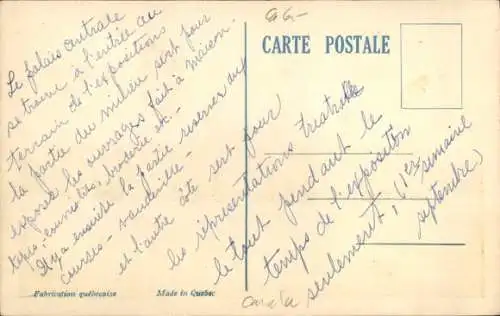 Le palais centrale
se trouve à l'entrée au
terrain de l'expositions
la partie du milieu sert pour
exposés les ouvrages fait à maison.
tapis, couvertes, broderie etc.-
Il y a ensuite la partie reservée aux
courses - vaudeville -
et l'autre côte sert pour
les réprésentations theatrales
le tout pendant le
temps de l'exposition
seulement; (1er semaine
septembre)
CARTE POSTALE
Fabrication québecoise
Made in Quebec